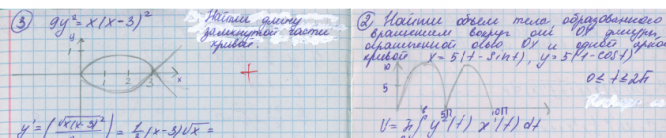 ③ 9y² = x(x-3)²
Найти длину
замкнутой части
кривой.
y
1
1 2 3 x
y' = (√x(x-3)²)' = (x-3)√x =
② Найти объем тела, образованного
вращением вокруг оси OY фигуры,
ограниченной осью OX и одной аркой
кривой x = 5(t - sin t), y = 5(1 - cos t)
10
5
0 ≤ t ≤ 2π
5π 10π
V = π∫ y²(t) x'(t) dt